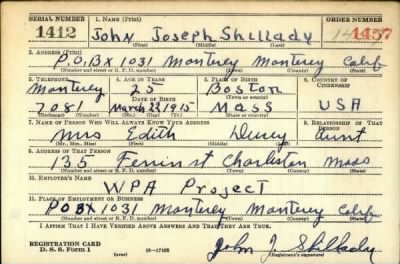 SERIAL NUMBER 1. NAME (Print) ORDER NUMBER
1412 John Joseph Shillady 1457
(First) (Middle) (Last)
2. ADDRESS (Print)
P.O.BX 1031 Monterey Monterey Calif
(Number and street or R. F. D. number) (Town) (County) (State)
3. TELEPHONE 4. AGE IN YEARS 5. PLACE OF BIRTH 6. COUNTRY OF CITIZENSHIP
Monterey 25 Boston
DATE OF BIRTH (Town or county)
7081 March 22 1915 Mass USA
(Exchange) (Number) (Mo.) (Day) (Yr.) (State or country)
7. NAME OF PERSON WHO WILL ALWAYS KNOW YOUR ADDRESS 8. RELATIONSHIP OF THAT PERSON
Mrs Edith aunt
(Mr., Mrs., Miss) (First) (Middle) (Last)
9. ADDRESS OF THAT PERSON
135 st Mass
(Number and street or R. F. D. number) (Town) (County) (State)
10. EMPLOYER'S NAME
WPA Project
11. PLACE OF EMPLOYMENT OR BUSINESS
PO BX 1031 Monterey Monterey Calif
(Number and street or R. F. D. number) (Town) (County) (State)
I AFFIRM THAT I HAVE VERIFIED ABOVE ANSWERS AND THAT THEY ARE TRUE.
REGISTRATION CARD
D. S. S. Form 1 (over) 16—17105 John J Shillady
(Registrant's signature)